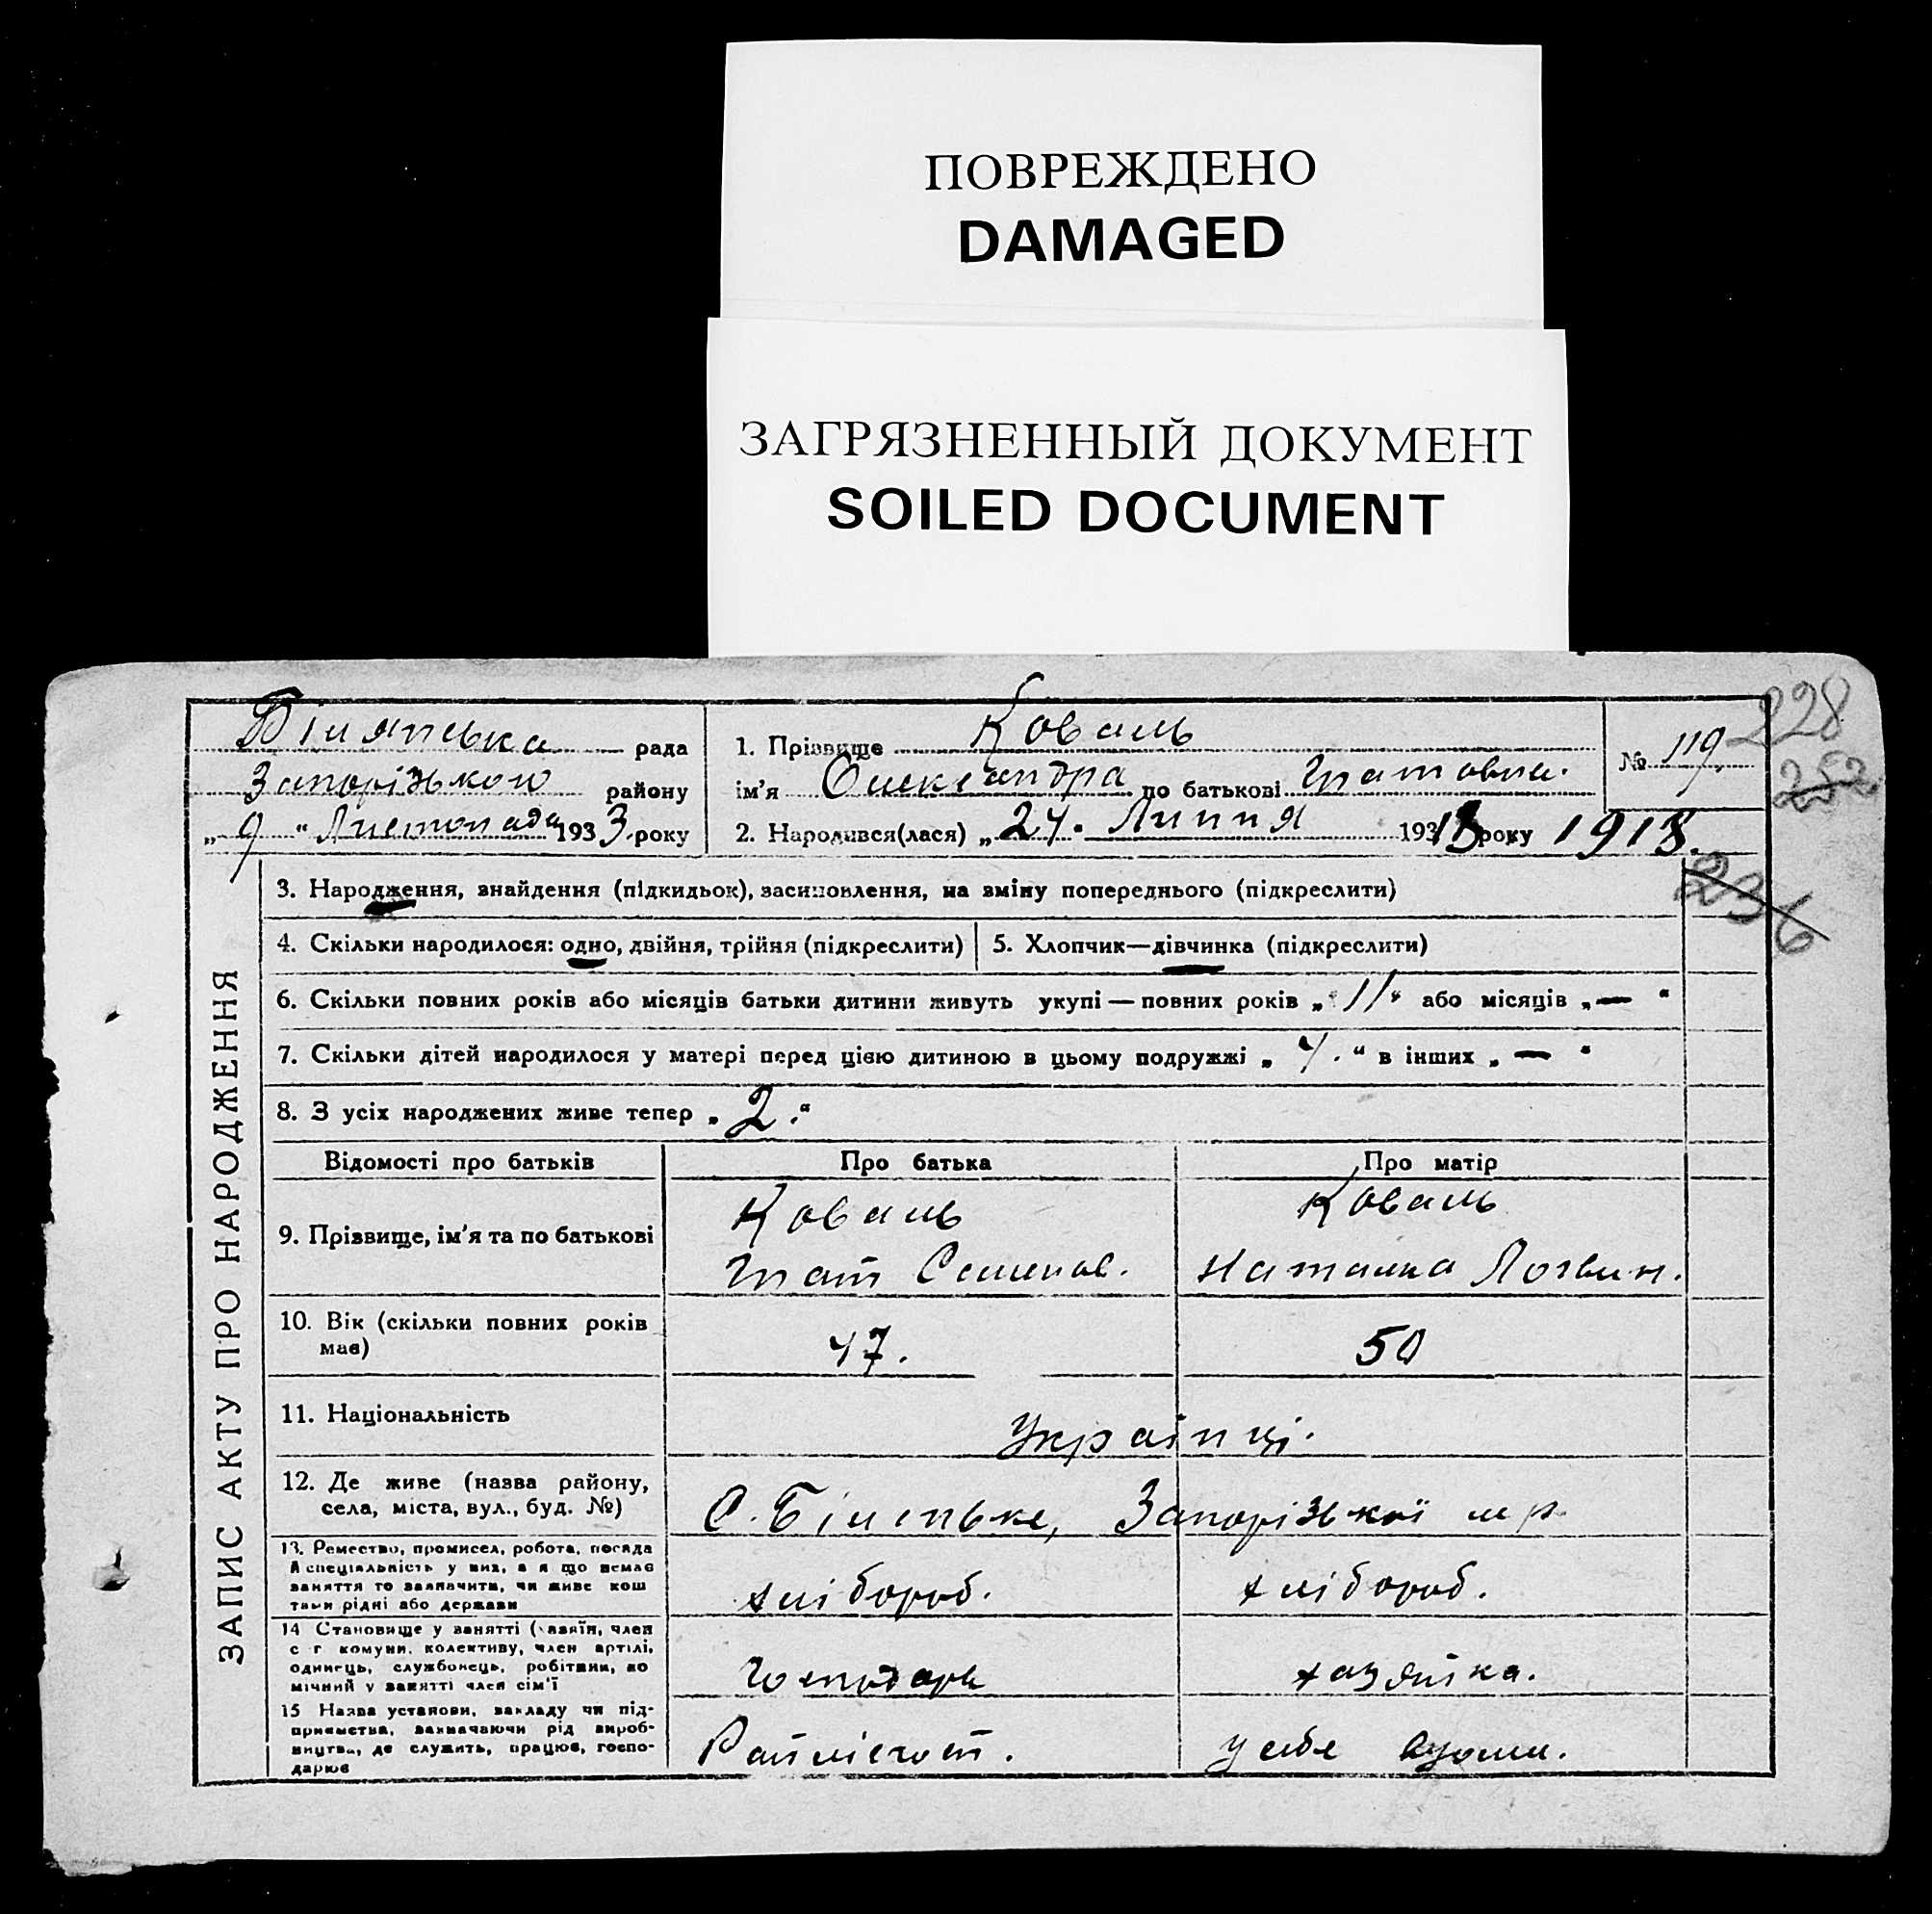 ПОВРЕЖДЕНО
DAMAGED
ЗАГРЯЗНЕННЫЙ ДОКУМЕНТ
SOILED DOCUMENT
228
252
236
рада
Запорізького району
„ 9 “ Листопада 1933 року
1. Прізвище Коваль
ім'я Олександра по батькові
№ 119.
2. Народився(лася) „ 24. Липня 19318 року 1918.
ЗАПИС АКТУ ПРО НАРОДЖЕННЯ
3. Народження, знайдення (підкидьок), засиновлення, на зміну попереднього (підкреслити)
4. Скільки народилося: одно, двійня, трійня (підкреслити)
5. Хлопчик—дівчинка (підкреслити)
6. Скільки повних років або місяців батьки дитини живуть укупі — повних років „ 11 “ або місяців „ — “
7. Скільки дітей народилося у матері перед цією дитиною в цьому подружжі „ 4. “ в інших „ — “
8. З усіх народжених живе тепер „ 2. “
Відомості про батьків
Про батька
Про матір
9. Прізвище, ім'я та по батькові
Коваль
Семенов.
Коваль
Наталка Логвин.
10. Вік (скільки повних років має)
47.
50
11. Національність
Українці.
12. Де живе (назва району,
села, міста, вул., буд. №)
С. Біленьке, Запорізької м р.
13. Ремество, промисел, робота, посада
й спеціяльність у них, а я що немає
заняття то зазначити, чи живе кош
тами рідні або держави
хлібороб.
хлібороб.
14 Становище у занятті (хазяїн, член
с г комуни, колективу, член артілі,
одинець, службонець, робітник, по
мічний у занятті член сім'ї
Господарь
хазяйка.
15 Назва установи, закладу чи під-
приємства, зазначаючи рід вироб-
ництва, де служить, працює, госпо-
дарює
у себе дома.